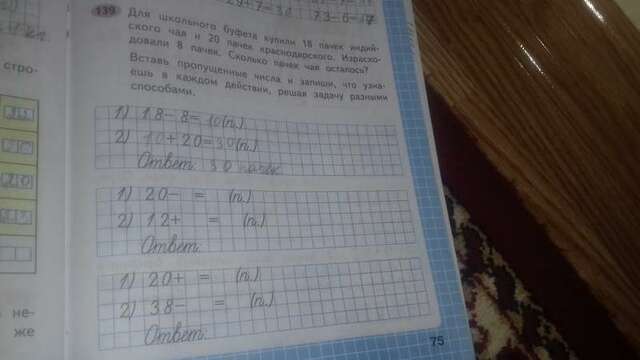 73-6=17
139 Для школьного буфета купили 18 пачек индий-
ского чая и 20 пачек краснодарского. Израсхо-
довали 8 пачек. Сколько пачек чая осталось?
Вставь пропущенные числа и запиши, что узна-
ёшь в каждом действии, решая задачу разными
способами.
1) 18-8=10(п.)
2) 10+20=30(п.)
Ответ: 30 пачек
1) 20- = (п.)
2) 12+ = (п.)
Ответ:
1) 20+ = (п.)
2) 38- = (п.)
Ответ:
75
стро-
не-
же